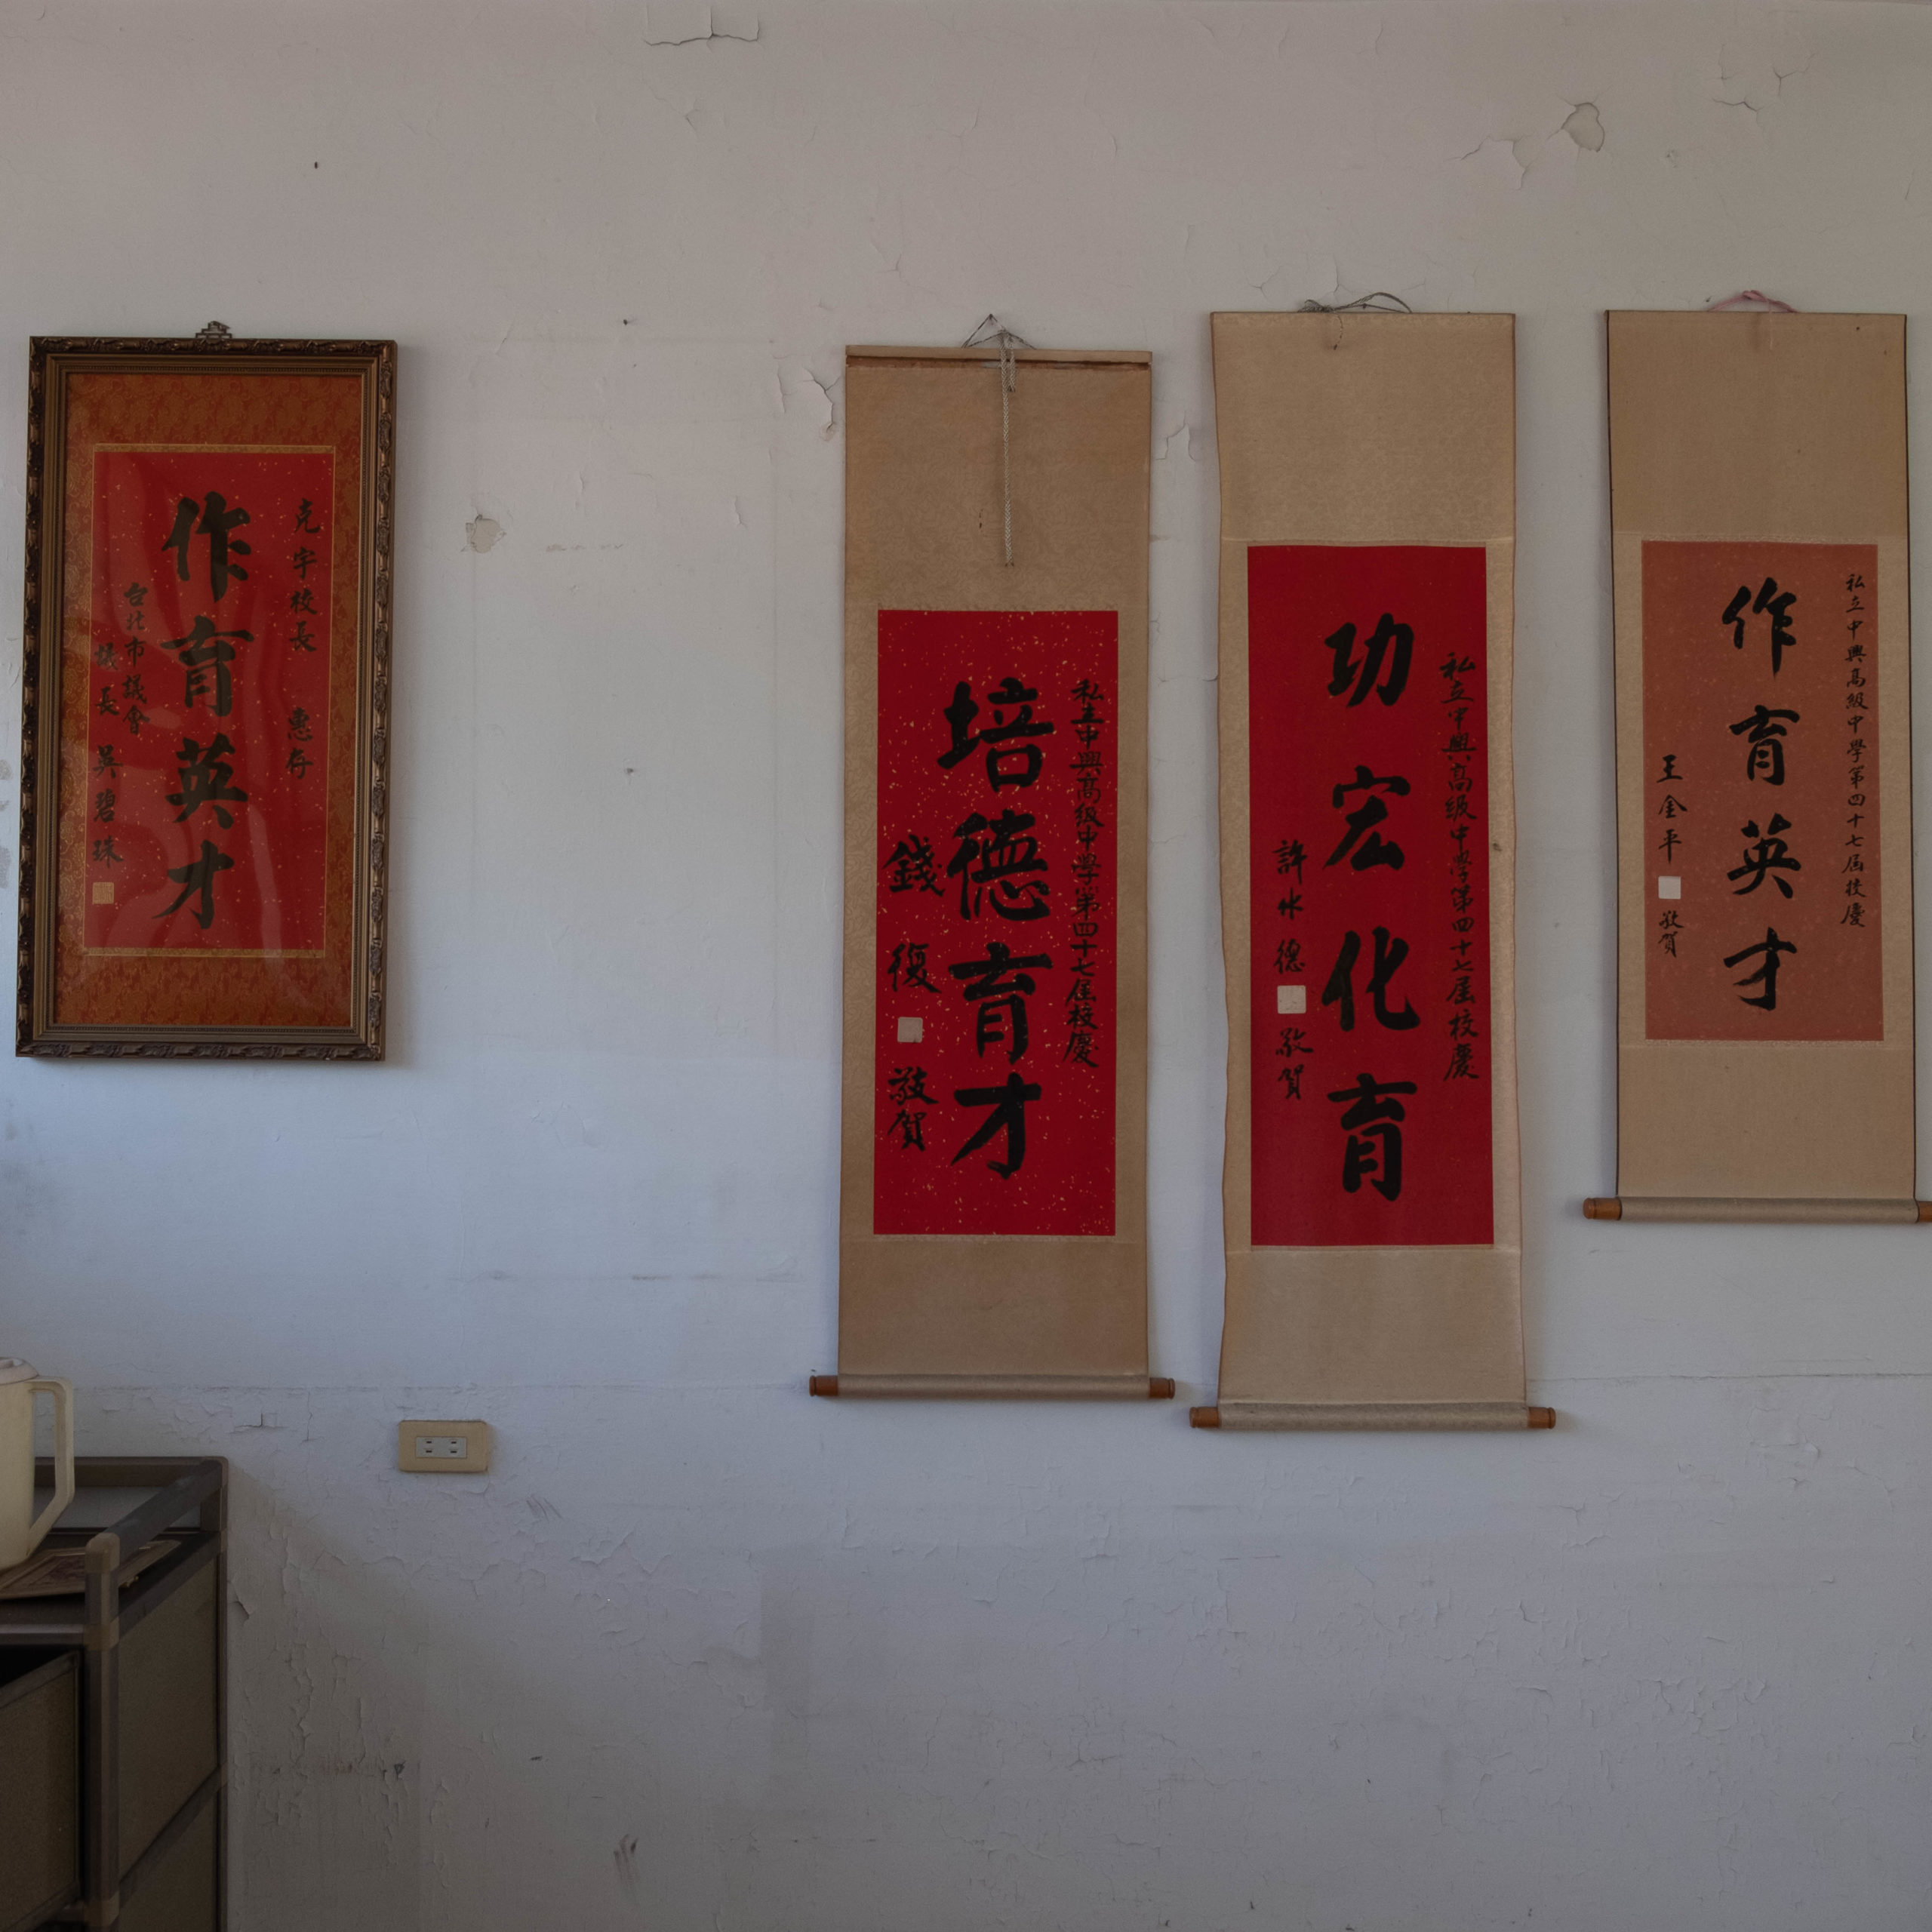 克宇校長 惠存
作育英才
台北市議會
議長 吳碧珠
私立中興高級中學第四十七屆校慶
培德育才
錢復 敬賀
私立中興高級中學第四十七屆校慶
功宏化育
許水德 敬賀
私立中興高級中學第四十七屆校慶
作育英才
王金平 敬賀